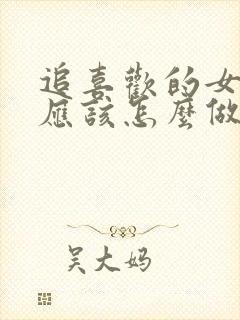 追喜歡的女
應該怎麼做
吴大妈